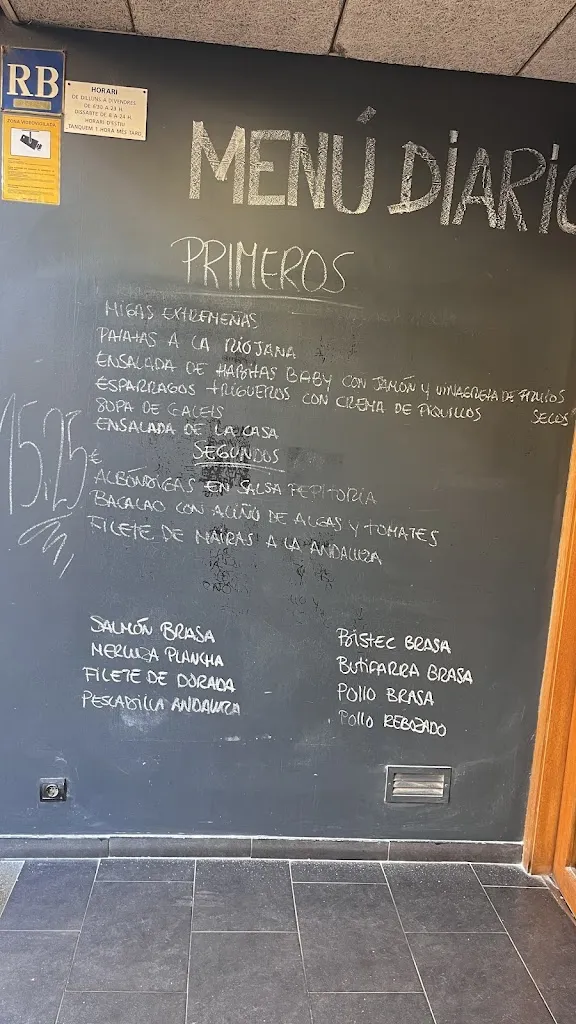 RB
HORARI
DE DILLUNS A DIVENDRES
DE 6'30 A 24 H.
DISSABTE DE 8 A 24 H.
HORARI D'ESTIU
TANQUEM 1 HORA MÉS TARD
ZONA VIDEOVIGILADA
MENÚ DIARIO
PRIMEROS
MIGAS EXTREMEÑAS
PATATAS A LA RIOJANA
ENSALADA DE HABITAS BABY CON JAMÓN Y VINAGRETA DE FRUTOS
SECOS
ESPARRAGOS TRIGUEROS CON CREMA DE PIQUILLOS
SOPA DE GALETS
ENSALADA DE LA CASA
15.25 €
SEGUNDOS
ALBÓNDIGAS EN SALSA PEPITORIA
BACALAO CON ALIÑO DE ALGAS Y TOMATES
FILETE DE MAIRAS A LA ANDALUZA
SALMÓN BRASA
MERLUZA PLANCHA
FILETE DE DORADA
PESCADILLA ANDALUZA
BISTEC BRASA
BUTIFARRA BRASA
POLLO BRASA
POLLO REBOZADO